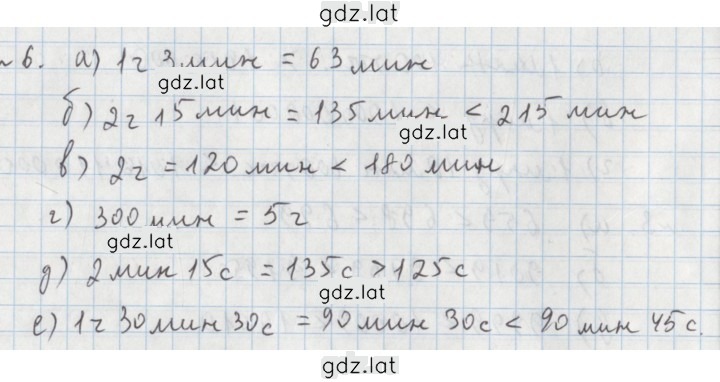 gdz.lat
№ 6. а) 1 ч 3 мин = 63 мин
gdz.lat
б) 2 ч 15 мин = 135 мин < 215 мин
gdz.lat
в) 2 ч = 120 мин < 180 мин
г) 300 мин = 5 ч
gdz.lat
д) 2 мин 15 с = 135 с > 125 с
gdz.lat
е) 1 ч 30 мин 30 с = 90 мин 30 с < 90 мин 45 с.
gdz.lat